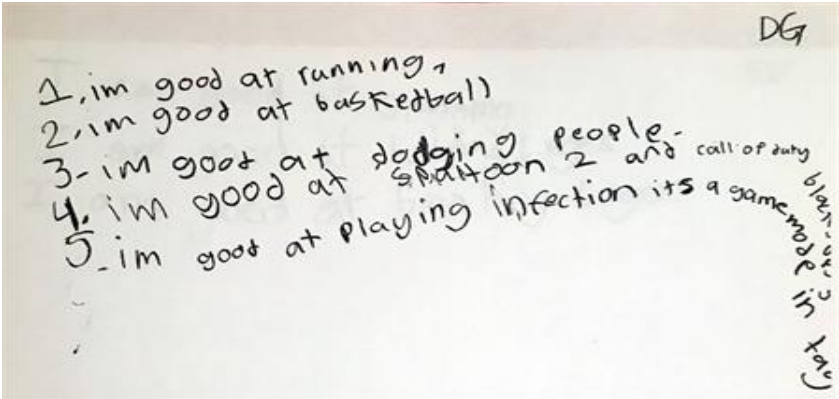 DG
1. im good at running,
2. im good at basketball
3- im good at dodging people-
4. im good at splatoon 2 and call of duty
5- im good at playing infection its a gamemode in tag